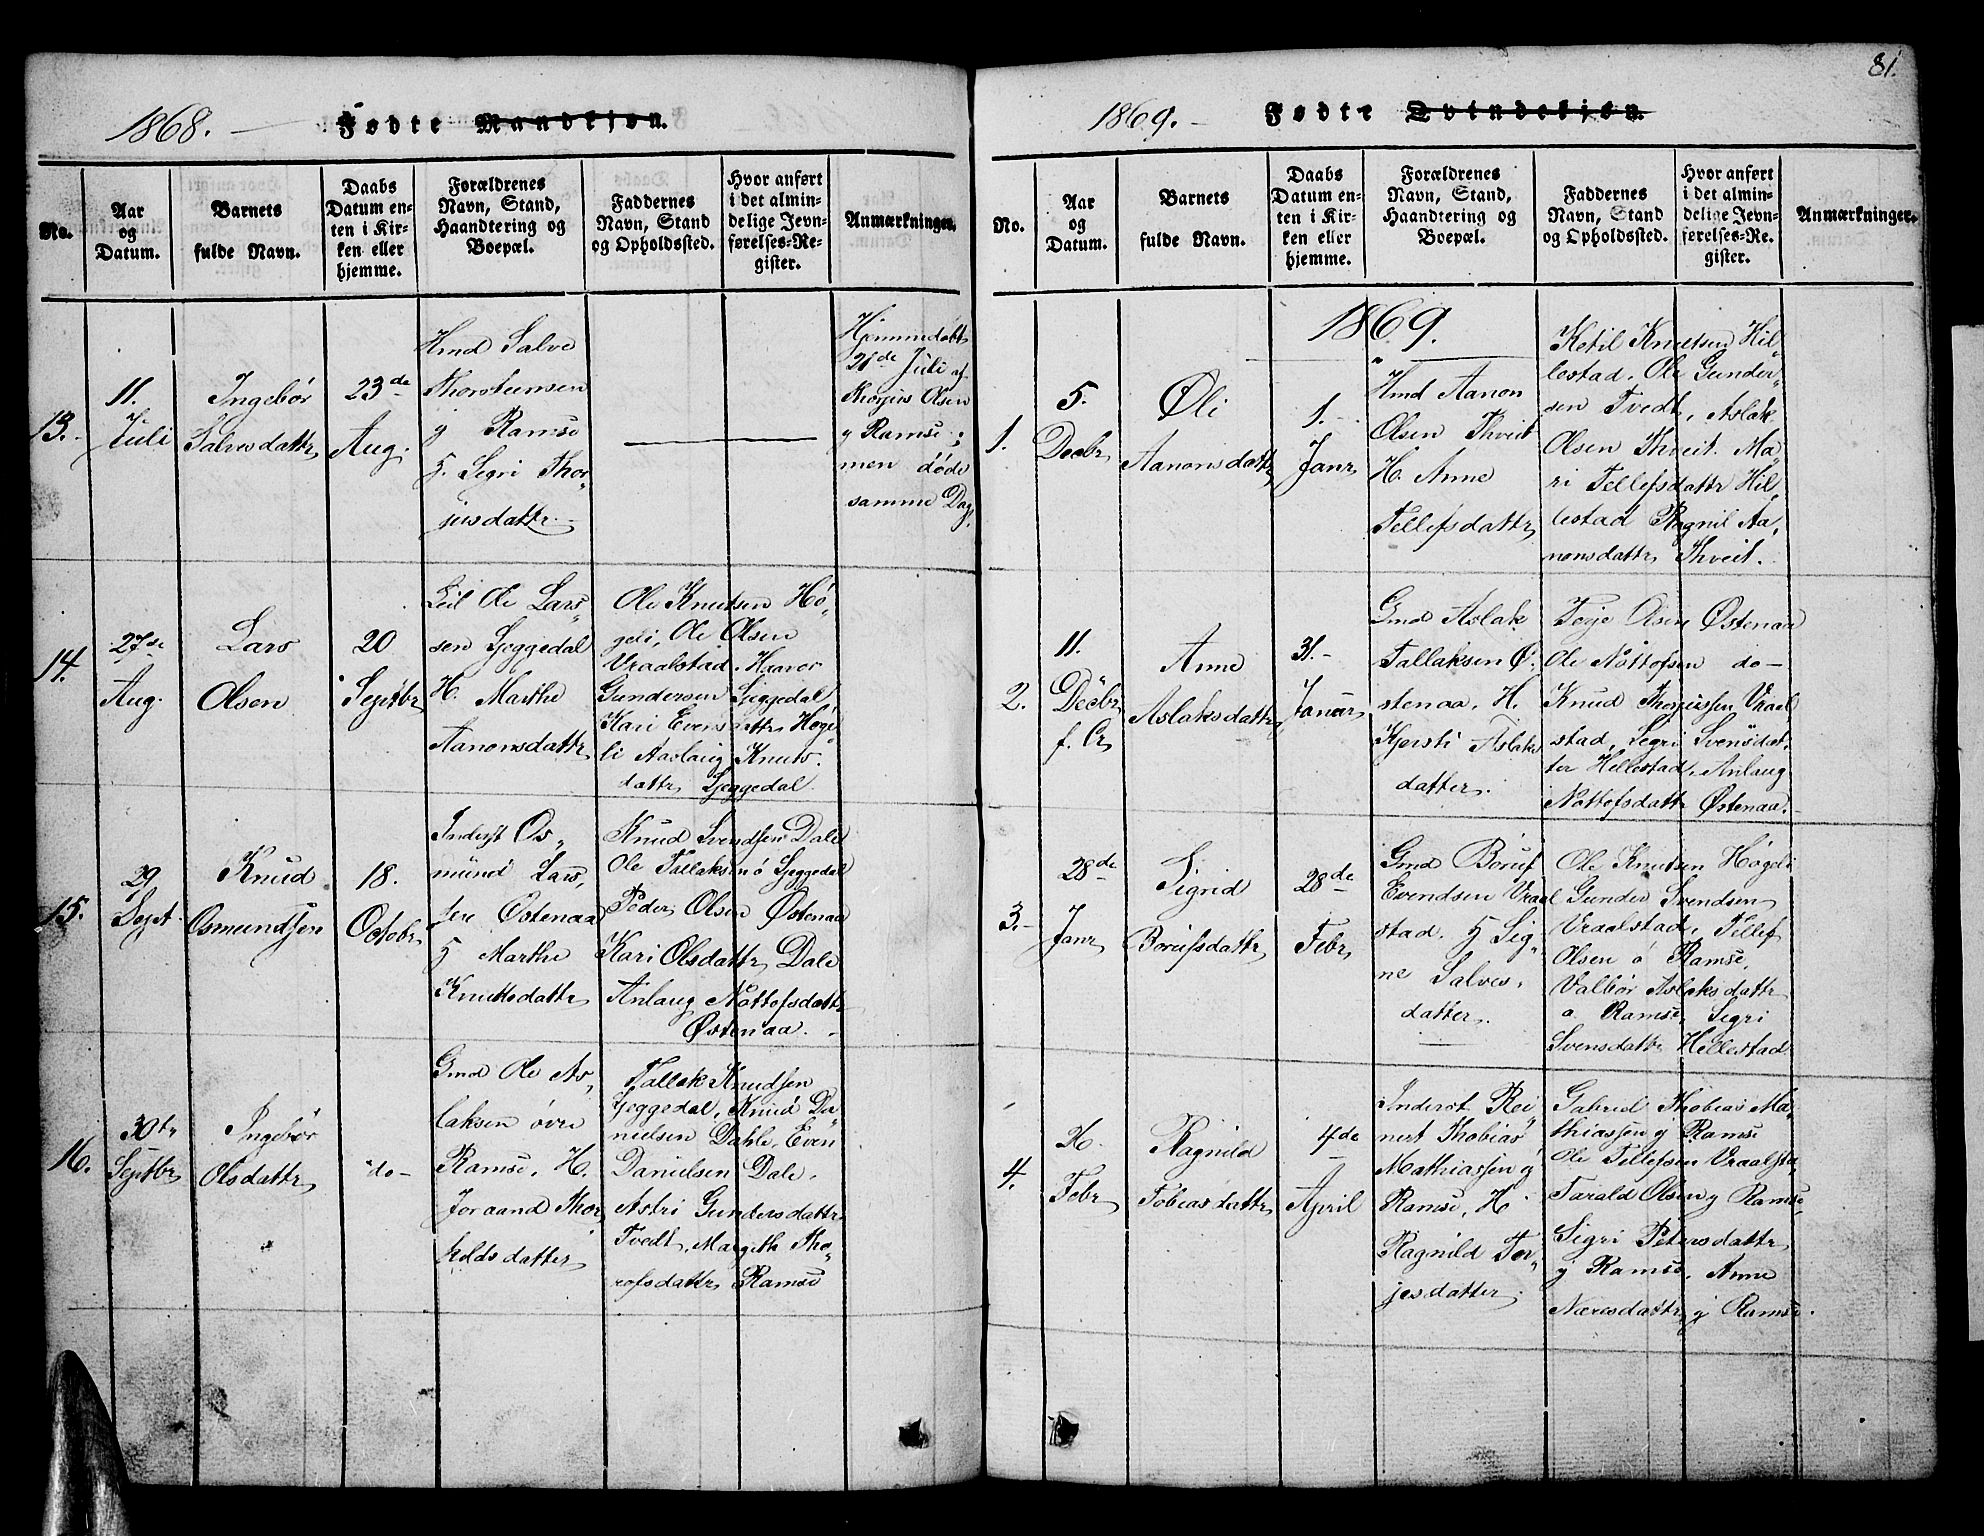 81.
1868. Fødte Mandkjøn.
No.
Aar og Datum.
Barnets fulde Navn.
Daabs Datum enten i Kirken eller hjemme.
Forældrenes Navn, Stand, Haandtering og Boepæl.
Faddernes Navn, Stand og Opholdssted.
Hvor anført i det almindelige Jevnførelses-Register.
Anmærkninger.
13.
11.
Juli
Ingebør
Salvesdattr
23de
Aug.
Hmd Salve
Thorsteinsen
y Ramse
H. Segri Thor„
jusdattr.
Hjemmedøbt
21de Juli af
Thorjus Olsen
y Ramse;
men døde
samme Dag.
14.
27de
Aug.
Lars
Olsen
20
Septbr
Leil Ole Lars„
sen Ljeggedal
H. Marthe
Aanonsdattr
Ole Knutsen Hø„
geli, Ole Olsen
Vraalstad. Haavor
Gundersen Ljeggedal
Kari Evensdattr Høge„
li Aaslaug Knuts„
dattr Ljeggedal.
15.
29
Sept.
Knud
Osmundsen
18.
Octobr
Inderst Os„
mund Lars„
sen Østenaa
H Marthe
Knutsdattr
Knud Svendsen Dale
Ole Tallaksen ö Ljeggedal
Peder Olsen Østenaa
Kari Olsdattr Dale
Anlaug Nottofsdattr
Østenaa.
16.
30te
Septbr
Ingebør
Olsdattr
do
Gmd Ole As„
laksen övre
Ramse, H.
Joraand Thor„
kildsdatter
Tallak Knudsen
Ljeggedal, Knud Da„
nielsen Dahle, Even
Danielsen Dale,
Astri Gundersdattr
Tvedt, Margith Tho„
rofsdattr Ramse
1869. Fødte Qvindekjøn.
No.
Aar og Datum.
Barnets fulde Navn.
Daabs Datum enten i Kirken eller hjemme.
Forældrenes Navn, Stand, Haandtering og Boepæl.
Faddernes Navn, Stand og Opholdssted.
Hvor anført i det almindelige Jevnførelses-Register.
Anmærkninger.
1869.
1.
5.
Decbr
Oli
Aanonsdattr
1.
Janr
Hmd Aanon
Olsen Thveit
H. Anne
Tellefsdattr
Ketil Knutsen Hil„
lestad, Ole Gunder„
sen Tvedt, Aslak
Olsen Thveit. Ma„
ri Tellefsdattr Hil„
lestad Ragnil Aa„
nonsdattr Thveit.
2.
11.
Decbr
f. Ar
Anne
Aslaksdattr
31.
Januar
Gmd Aslak
Tallaksen Ø„
stenaa, H.
Kjersti Aslaks
datter.
Terje Olsen Østenaa
Ole Nottofsen do
Knud Thorjussen Vraal
stad, Segri Svensdat„
ter Hillestad, Anlaug
Nottofsdattr Østenaa.
3.
28de
Janr
Sigrid
Borufsdattr
28de
Febr
Gmd Boruf
Evendsen Vraal
stad. H Sig„
ne Salves„
datter.
Ole Knutsen Høgeli
Gunder Svendsen
Vraalstad, Tellef
Olsen ö Ramse,
Valbør Aslaksdattr
ö Ramse, Segri
Svensdattr Hillestad
4.
Febr
Ragnild
Tobiasdattr
4de
April
Inderst Rei„
nert Thobias
Mathiassen y
Ramse, H.
Ragnild Ter„
jesdatter.
Gabriel Thobias Ma„
thiassen y Ramse
Ole Tellefsen Vraalsta
Tarald Olsen y Ramse
Sigri Petersdattr
y Ramse, Anne
Neresdattr y Ramse.